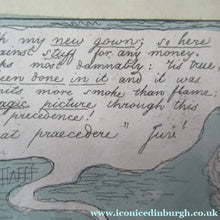 th my new gown; so here
gainst stuff for any money.
ks most damnably: 'tis true
een done in it and it was
its more smoke than flame;
agic picture through this
precedence!
at praecedere" Juv:
www.iconicedinburgh.co.uk